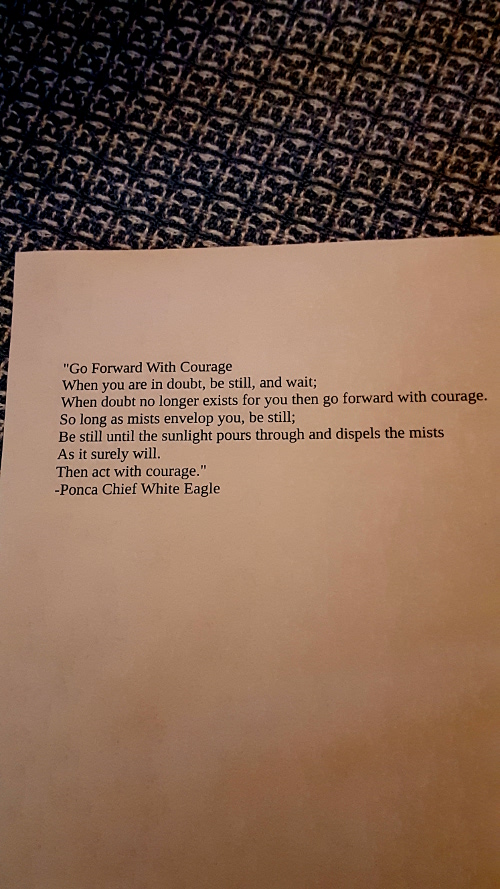 "Go Forward With Courage
When you are in doubt, be still, and wait;
When doubt no longer exists for you then go forward with courage.
So long as mists envelop you, be still;
Be still until the sunlight pours through and dispels the mists
As it surely will.
Then act with courage."
-Ponca Chief White Eagle